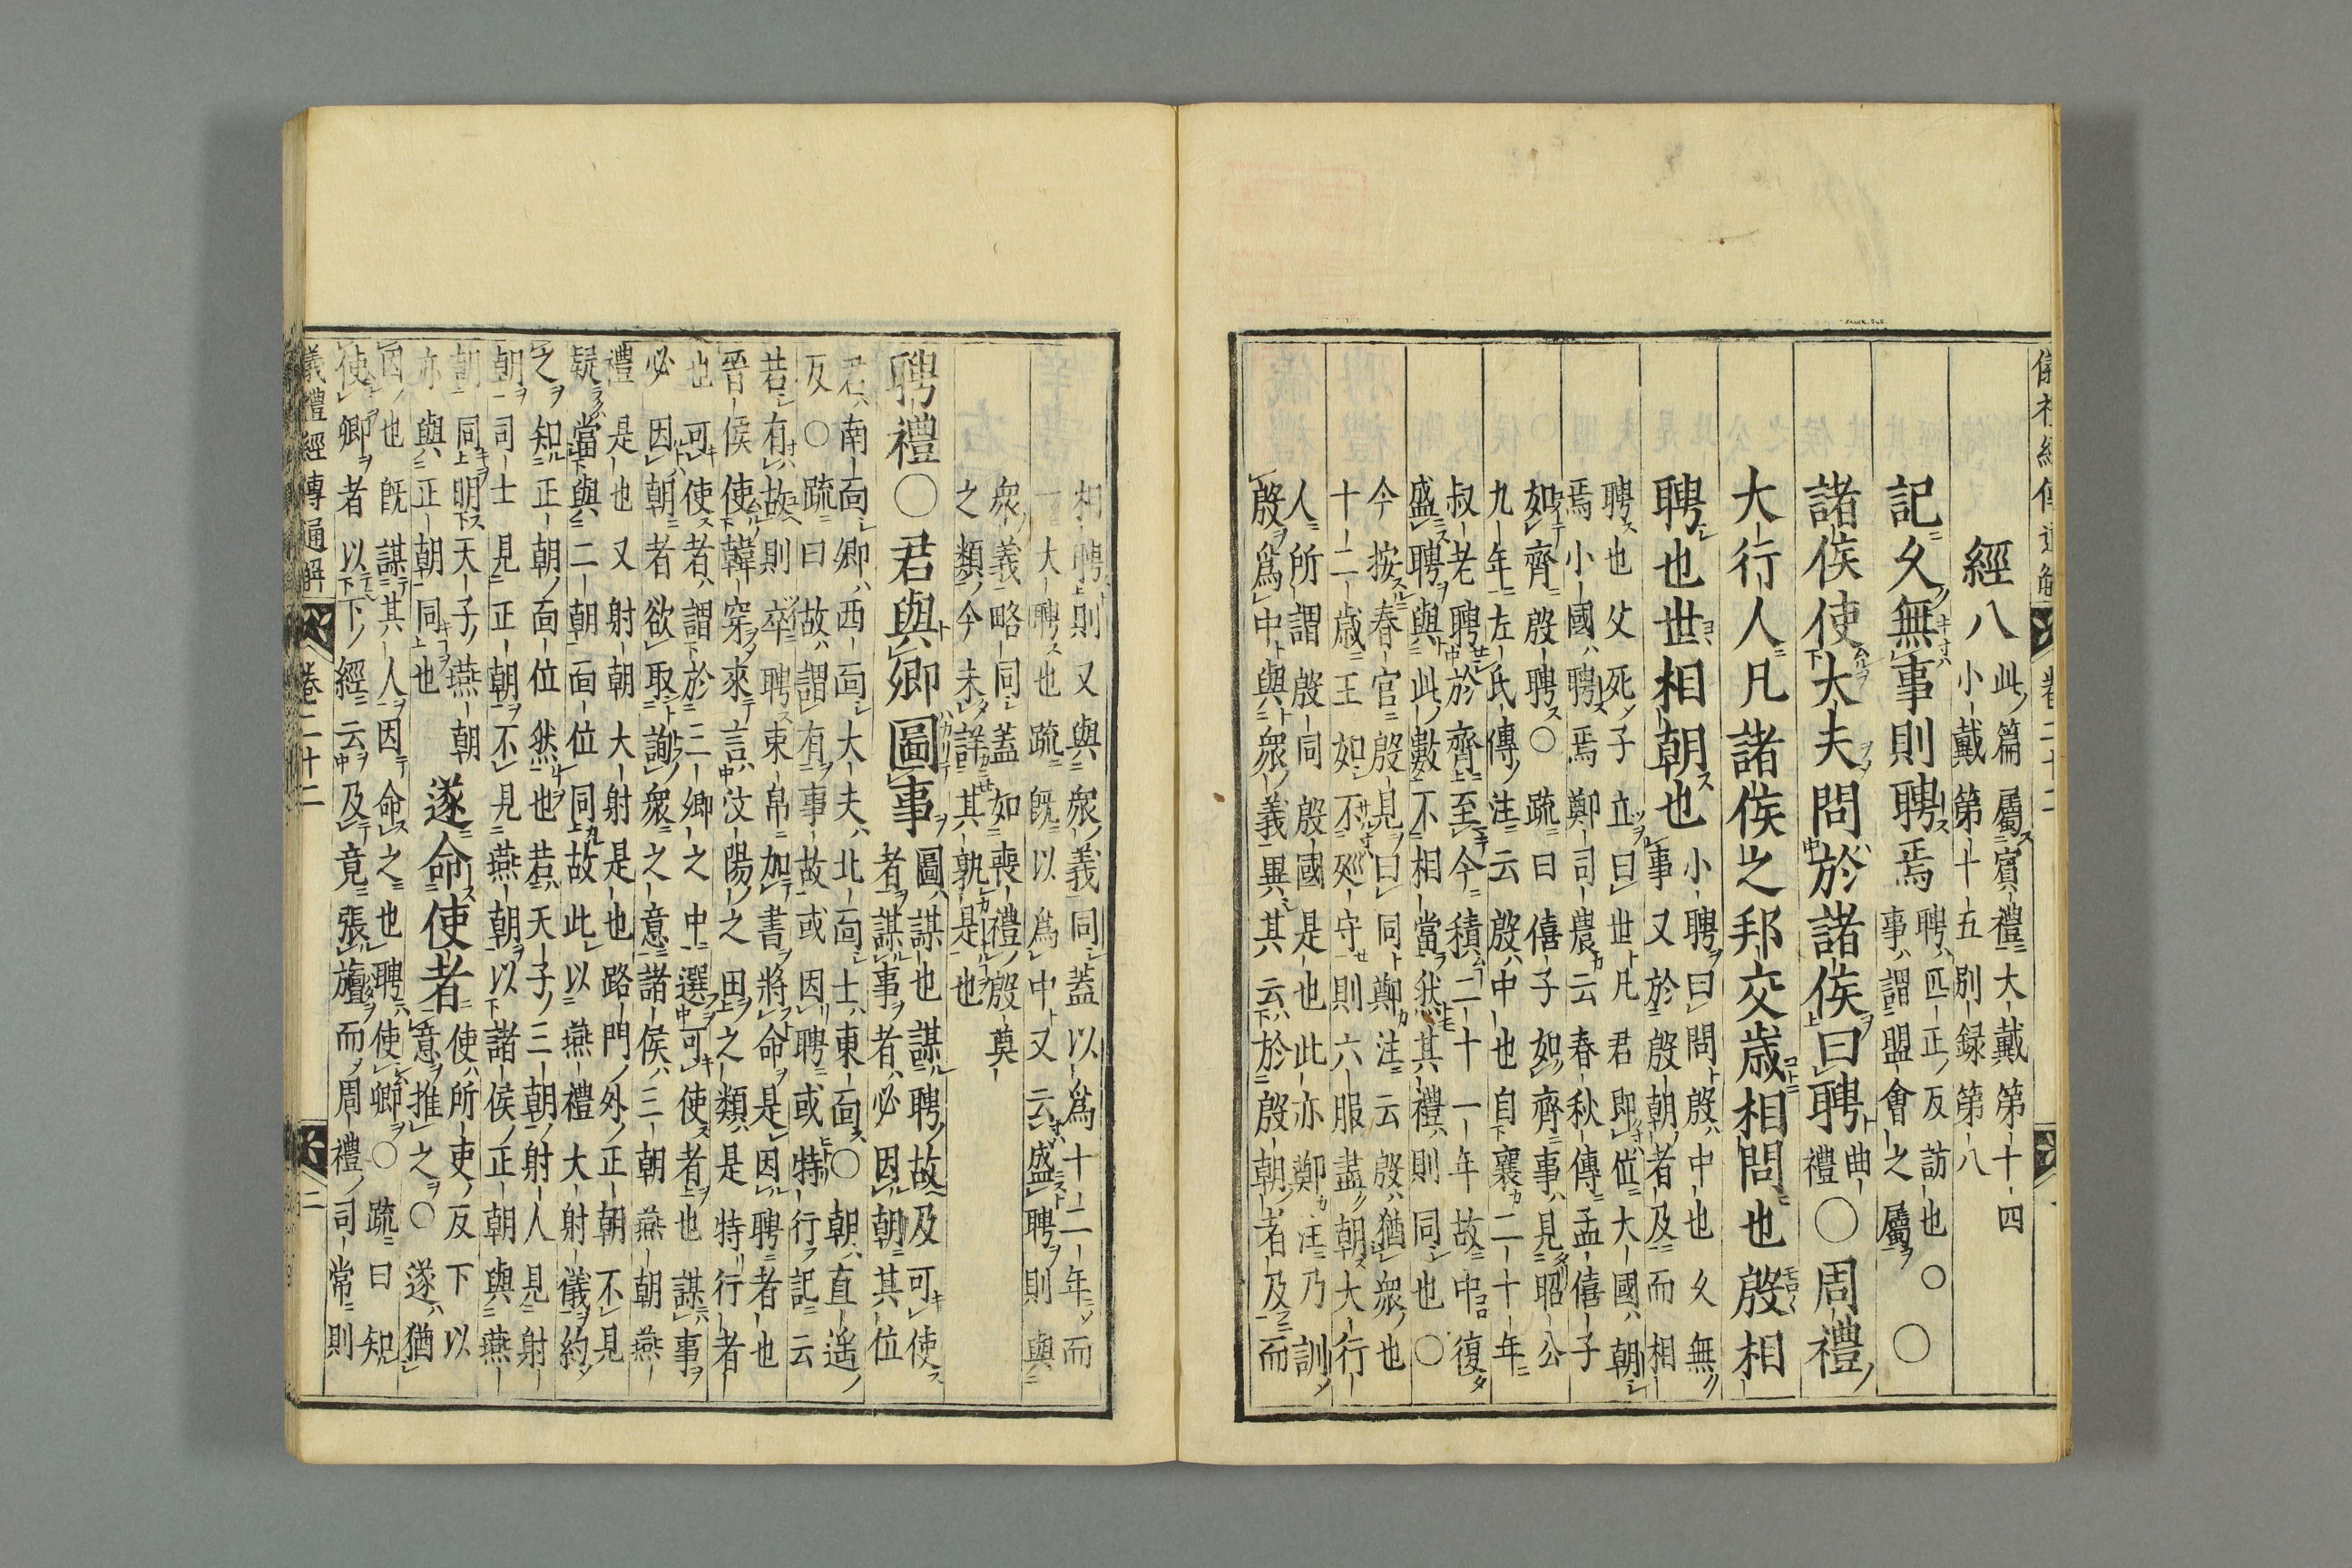 儀禮經傳通解 卷二十二 一
經八
此篇屬賓禮大戴第十四
小戴第十五別録第八
記久無事則聘焉
聘匹正反訪也○
事謂盟會之屬○
諸侯使大夫問於諸侯曰聘
曲
禮
○周禮
大行人凡諸侯之邦交歳相問也殷相
聘也世相朝也
小聘曰問殷中也久無
事又於殷朝者及而相
聘也父死子立曰世凡君即位大國朝
焉小國聘焉鄭司農云春秋傳孟僖子
如齊殷聘○疏曰僖子如齊事見昭公
九年左氏傳注云殷中也自襄二十年
叔老聘於齊至今積二十一年故中復
盛聘與此數不相當然其禮則同也○
今按春官殷見曰同鄭注云殷猶衆也
十二歳王如不廵守則六服盡朝大行
人所謂殷同殷國是也此亦鄭注乃訓
殷爲中與衆義異其云於殷朝者及而
相聘則又與衆義同蓋以爲十二年而
一大聘也疏既以爲中又云盛聘則與
衆義略同蓋如喪禮殷奠
之類今未詳其孰是也
聘禮○君與卿圖事
圖謀也謀聘故及可使
者謀事者必因朝其位
君南面卿西面大夫北面士東面○朝直遥
反○疏曰故謂有事故或因聘或特行記云
若有故則卒聘束帛加書將命是因聘者也
晉侯使韓穿來言汶陽之田之類是特行者
也可使者謂於三卿之中選可使者也謀事
必因朝者欲取詢衆之意諸侯三朝燕朝燕
禮是也又射朝大射是也路門外正朝不見
疑當與二朝面位同故此以燕禮大射儀約
之知正朝面位然也若天子三朝射人見射
朝司士見正朝不見燕朝以諸侯正朝與燕
朝同明天子燕朝
亦與正朝同也
遂命使者
使所吏反下以
意推之○遂猶
因也既謀其人因命之也聘使卿○疏曰知
使卿者以下經云及竟張旜而周禮司常則
儀禮經傳通解 卷二十二 二